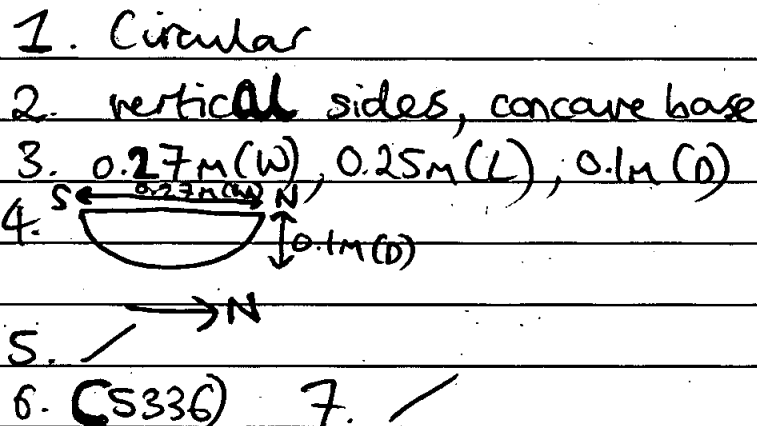 1. Circular
2. vertical sides, concave base
3. 0.27m(W), 0.25m(L), 0.1m(D)
S 0.27m(W) N
4. 0.1m(D)
N
5. /
6. (5336) 7. /